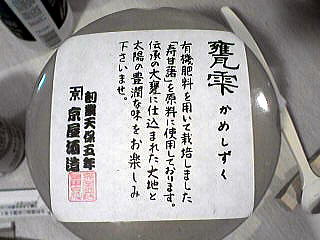 甕雫
かめしずく
有機肥料を用いて栽培しました
「寿甘藷」を原料に使用しております。
伝承の大甕に仕込まれた大地と
太陽の豊潤な味をお楽しみ
下さいませ。
創業天保五年
京屋酒造